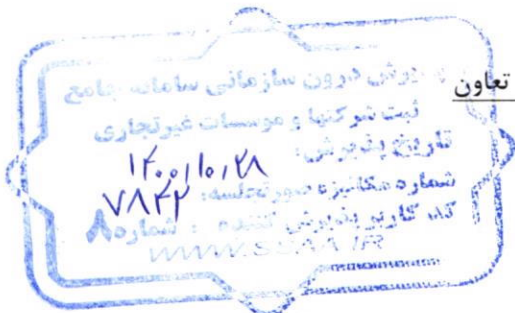 تعاون
پذیرش درون سازمانی سامانه جامع
ثبت شرکتها و موسسات غیرتجاری
تاریخ پذیرش: ۱۴۰۰/۱۰/۲۸
شماره مکانیزه صورتجلسه: ۷۸۴۲
کد کاربر پذیرش کننده : شماره ۸
WWW.SSAA.IR